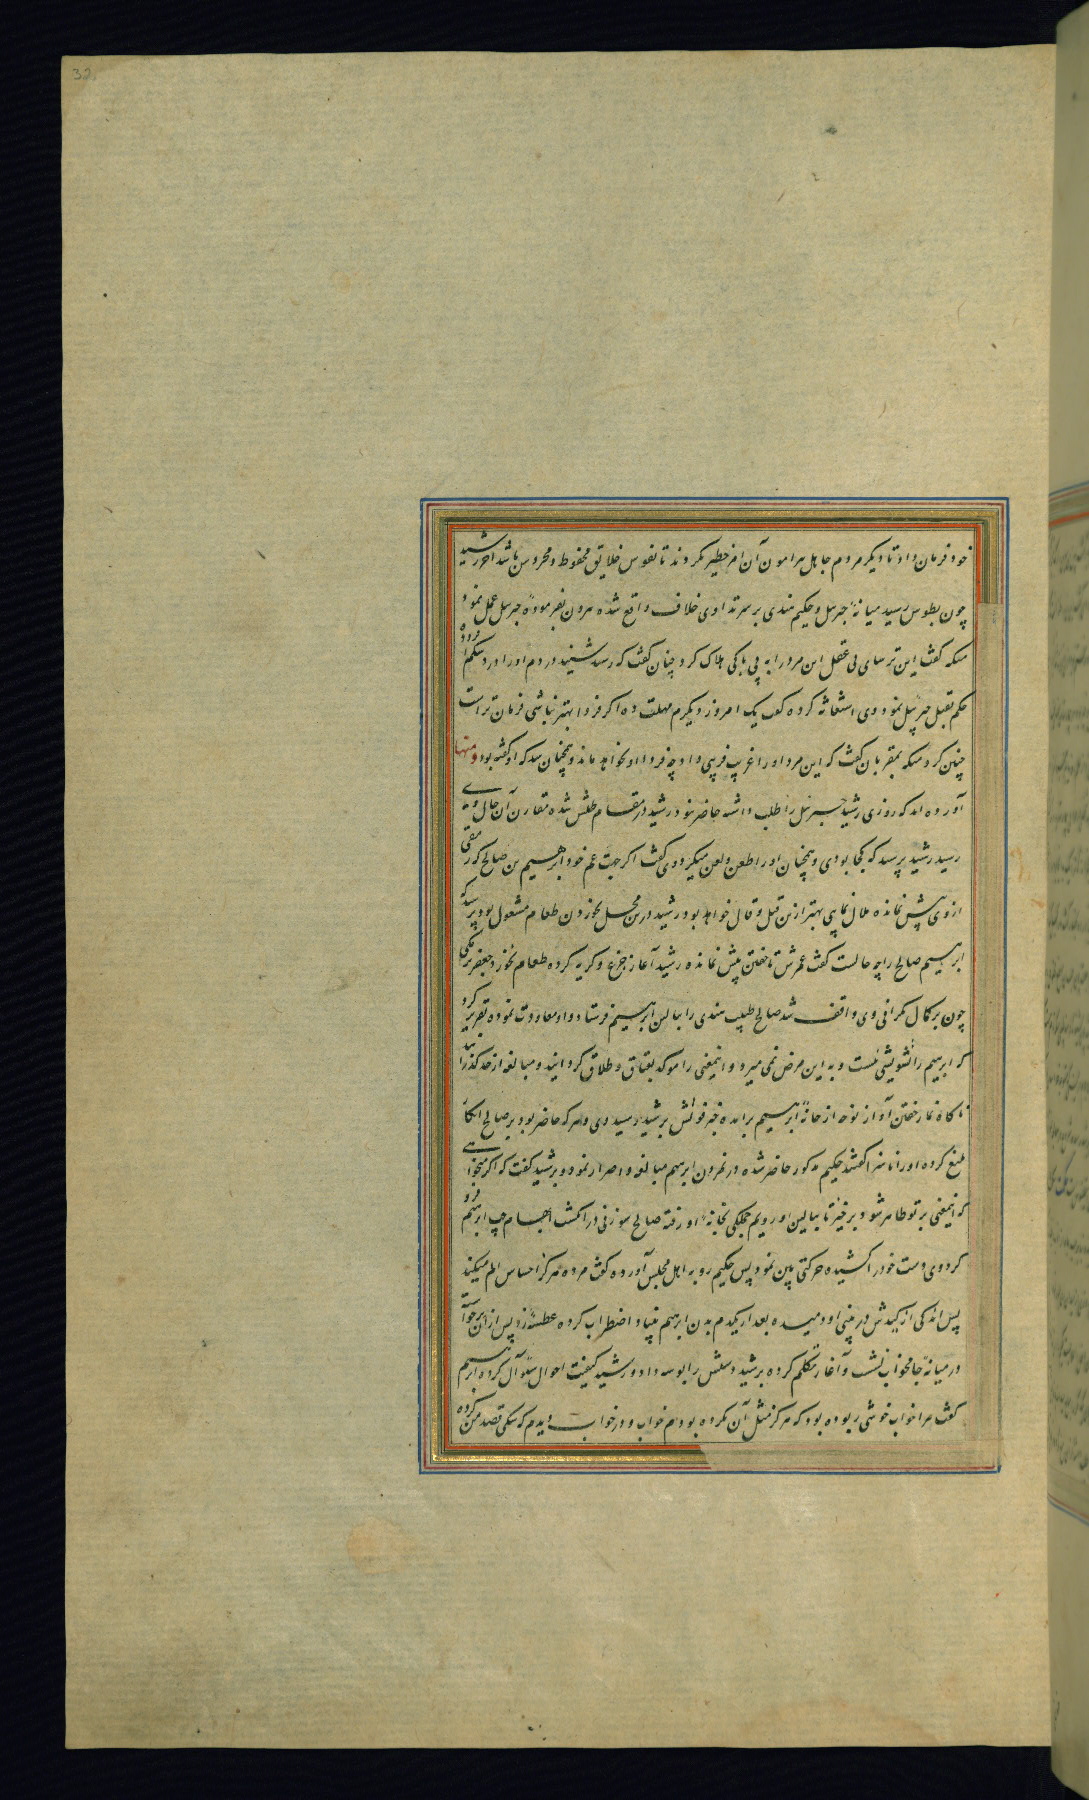 32
خود فرمان داد تا دیگر مردم جاهل پیرامون آن امر خطیر نگردند تا نفوس خلایق محفوظ و محروس باشد آخر رشید
چون بطوس رسید میانهٔ جبرئیل و حکیم هندی بر سر تداوی خلاف واقع شده هرون بفرمودهٔ جبرئیل عمل نمود
منکه گفت این ترسای بی عقل این مرد را به بی باکی هلاک کرد چنان گفت که رشید شنید در دم او را
حکم بقتل جبرئیل نمود وی استغاثه کرده گفت یک امروز دیگرم مهلت ده اگر فردا بهتر نباشی فرمان تراست
چنین کرد منکه بمقربان گفت که این مرد او را غریب فریبی داد چه فردا او نخواهد ماند و همچنان شد که او گفته بود و منها
آورده اند که روزی رشید جبرئیل را طلب داشته حاضر نبود رشید در مقام طلبش شده مقارن آن حال وی
رسید رشید پرسید که کجا بودی و همچنان او را طعن و لعن میکرد وی گفت اگر جهت عم خود ابراهیم بن صالح که رمقی
از وی بیش نمانده ملال نمایی بهتر ازین قیل و قال خواهد بود رشید درین محل بخوردن طعام مشغول بود پرسید که
ابراهیم صالح را چه حالست گفت عمرش تا خفتن بیش نمانده رشید آغاز جزع و گریه کرده طعام نخورد جعفر برمکی
چون بر کمال نگرانی وی واقف شد صالح طبیب هندی را ببالین ابراهیم فرستاد و او معاودت نموده تقریر کرد
که ابراهیم را تشویشی نیست و به این مرض نمی میرد و اینمعنی را موکد بعتاق و طلاق گردانید و مبالغه از حد گذرانید
ناگاه نماز خفتن آواز نوحه از خانهٔ ابراهیم برآمده خبر فوتش برشید رسید وی و هر که حاضر بود بر صالح انکار
بلیغ کرده او را ناسزا گفتند حکیم مذکور حاضر شده در نمردن ابراهیم مبالغه و اصرار نمود و برشید گفت که اگر میخواهی
که اینمعنی بر تو ظاهر شود برخیز تا ببالین او رویم جملگی بخانهٔ او رفته صالح سوزنی در انگشت ابهام چپ ابراهیم فرو
کرد وی دست خود را کشیده حرکتی باین نمود پس حکیم رو به اهل مجلس آورده گفت مرده هرگز احساس الم میکند
پس اندکی از کندش در بینی او دمیده بعد از یکدم بدن ابراهیم بنیاد اضطراب کرده عطسهٔ زد پس از آن برخواست
در میانهٔ جامخواب نشست و آغاز تکلم کرده برشید دستش را بوسه داد و رشید کیفیت احوال سوآل کرده ابراهیم
گفت مرا خواب خوشی ربوده بود که هرگز مثل آن نکرده بودم خواب و در خواب دیدم که سگی قصد من کرده